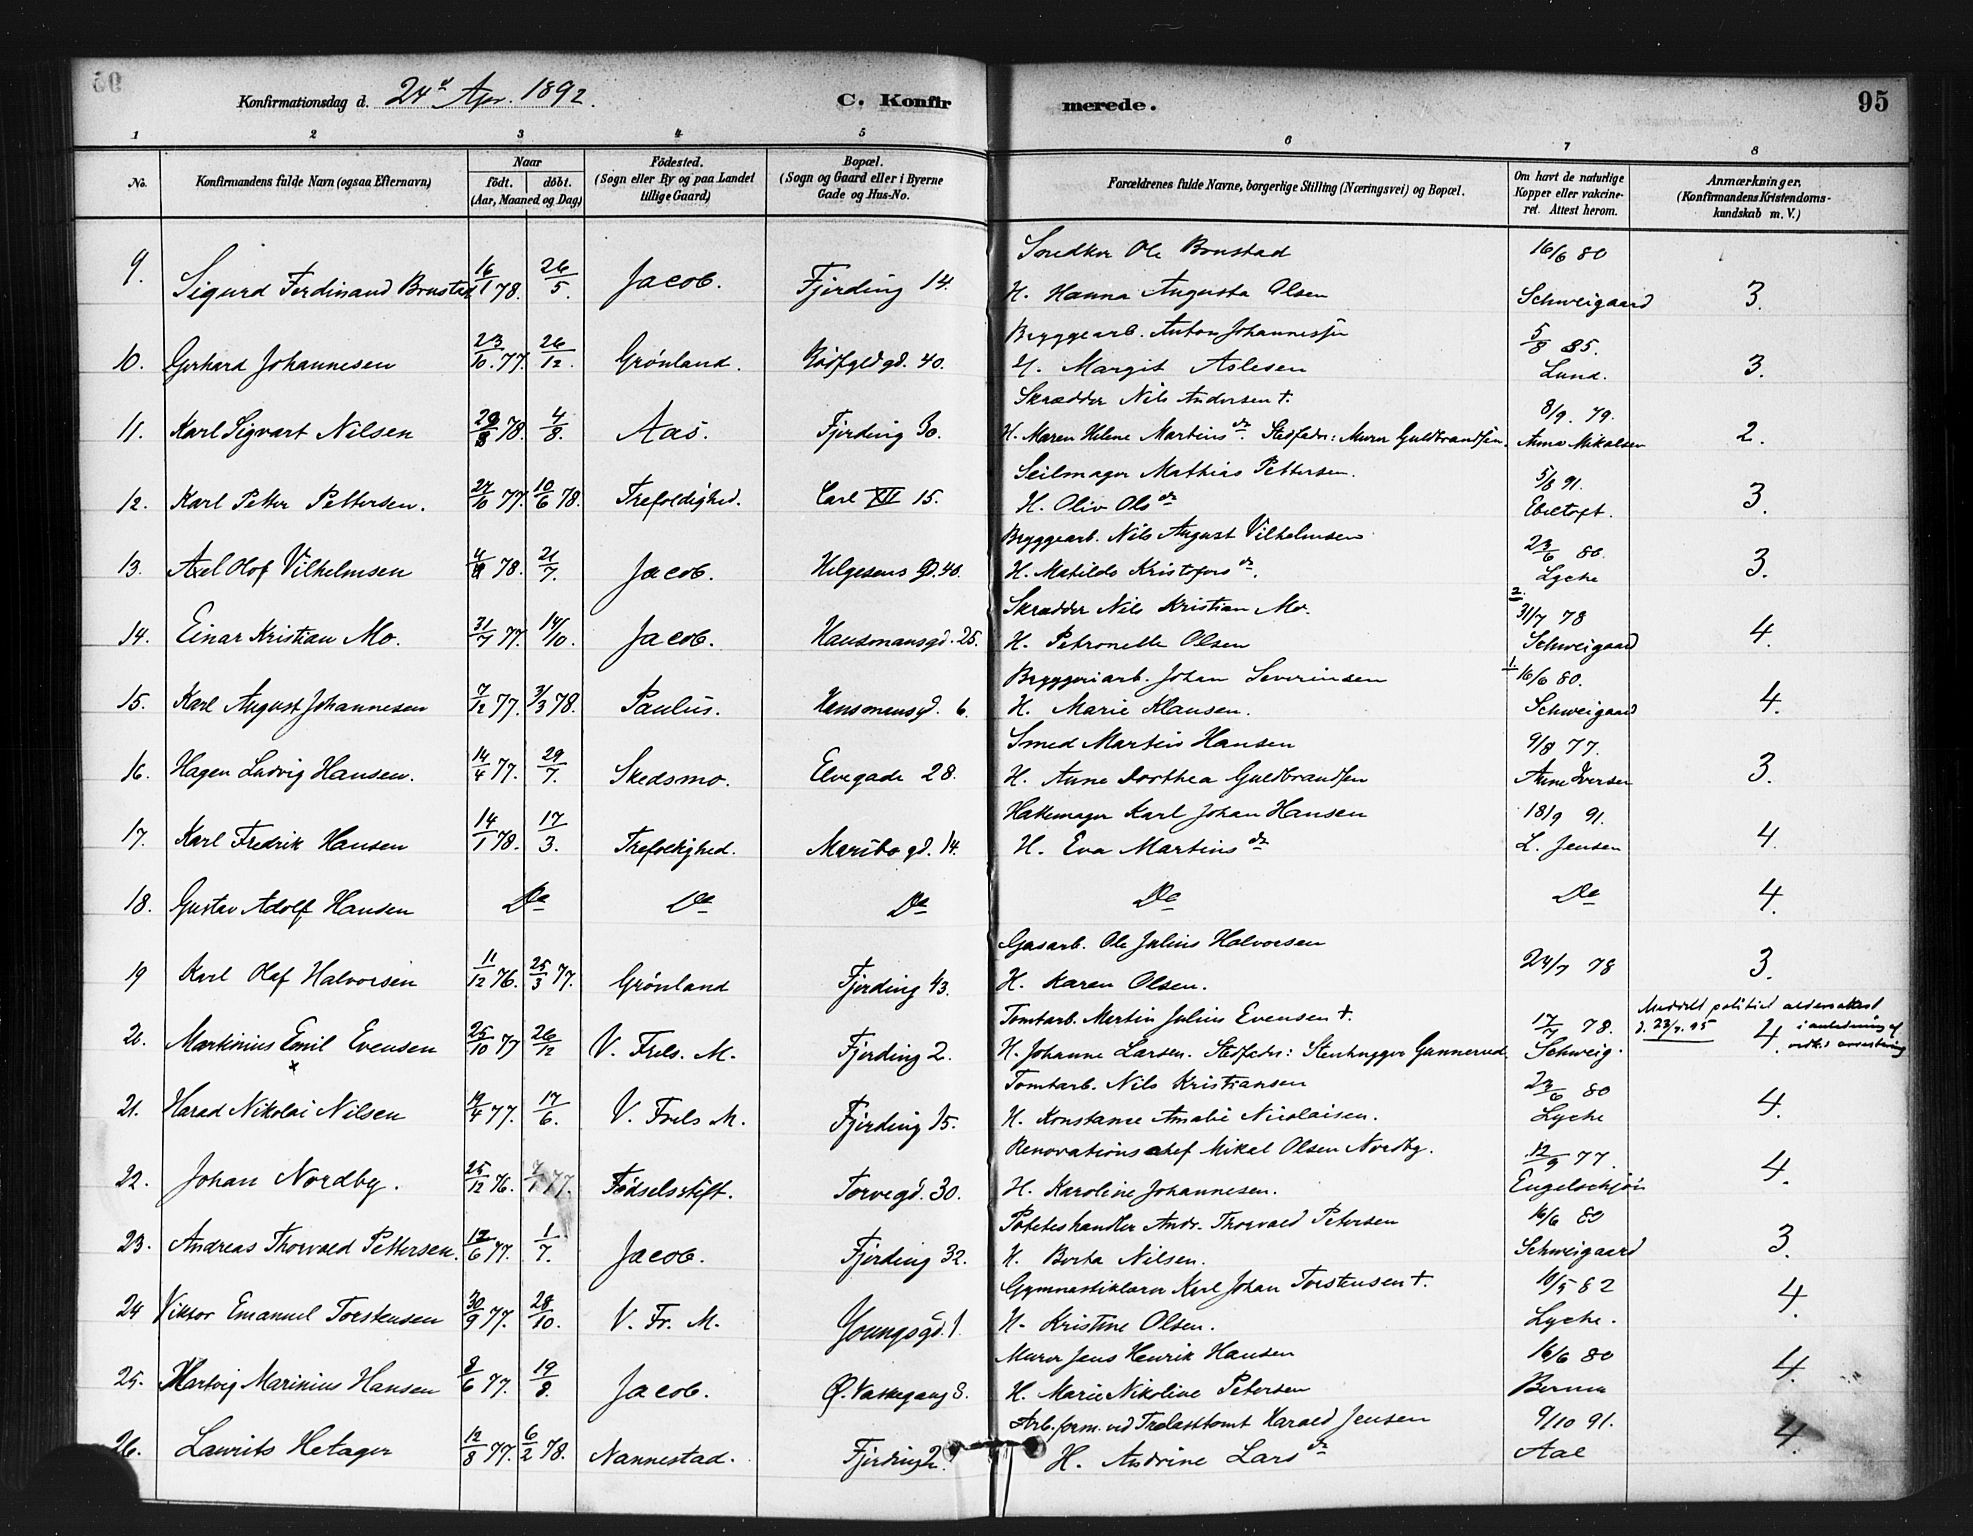 Konfirmationsdag d. 24de Apr. 1892. C. Konfirmerede. 95
1 2 3 4 5 6 7 8
No. Konfirmandens fulde Navn (ogsaa Efternavn) Naar født. døbt. (Aar, Maaned og Dag) Födested. (Sogn eller By og paa Landet tillige Gaard) Bopæl. (Sogn og Gaard eller i Byerne Gade og Hus-No. Forældrenes fulde Navne, borgerlige Stilling (Næringsvei) og Bopæl. Om havt de naturlige Kopper eller vakcineret. Attest herom. Anmærkninger. (Konfirmandens Kristendomskundskab m. V.)
Snedker Ole Bonstad 16/6 80
9. Sigurd Ferdinand Bonstad 16/1 78. 26/5. Jacob. Fjerding 14. H. Hanna Augusta Olsen Schweigaard 3.
Bryggearb. Anton Johannessen 5/8 85.
10. Gerhard Johannesen 23/10. 77. 26/12. Grönland. 40. H. Margit Aslesen Lund. 3.
Skrædder Nils Andersen †. 8/9. 79.
11. Karl Sigvart Nilsen 78. 4/8. Aas. Fjerding 30. H. Maren Helene Martinsdr. Stedfader: Murer Guldbrandsen. Anna Mikalsen 2.
Seilmager Mathias Pettersen. 5/8 91.
12. Karl Petter Pettersen. 27/10 77. 10/6 78. Trefoldighed. Carl XII 15. H. Oliv Olsdr Ebeltoft. 3.
Bryggearb. Nils August Vilhelmsen 23/6 80.
13. Axel Olof Vilhelmsen 78. 21/7. Jacob. Helgesens Gd. 40. H. Matilde Kristofersdr. Lyche 3.
Skrædder Nils Kristian Mo. 2. 31/7 78
14. Einar Kristian Mo. 31/7 77. 14/10. Jacob. Hausmansgd. 25. H. Petronelle Olsen Schweigaard 4.
Bryggeriarb. Johan Severinsen 1. 16/6 80.
15. Karl August Johannesen 7/12 77. 3/3 78. Paulus. Hausmansgd. 6. H. Marie Klausen. Schweigaard 4.
Smed Martin Hansen 9/8 77.
16. Hagen Ludvig Hansen. 14/4 77. 29/7. Skedsmo. Elvegade 28. H. Anne Dorthea Guldbrandsen Anne Iversen 3.
Hattemager Karl Johan Hansen 18/9 91.
17. Karl Fredrik Hansen 14/1 78. 17/3. Trefoldighed. Maribogd. 14. H. Eva Martinsdr L. Jensen 4.
18. Gustav Adolf Hansen Do Do Do Do Do 4.
Gasarb. Ole Julius Halvorsen
19 Karl Olaf Halvorsen 11/12 76. 25/3 77. Grönland Fjerding 43. H. Karen Olsen. 24/7 78 3.
Tomtarb. Martin Julius Evensen †. 17/7 78. Meddelt politiet aldersattest
20. Martinius Emil Evensen 25/10 77 26/12 V. Frels. M. Fjerding 2. H. Johanne Larsen. Stedfader: Stenhugger Gunnerud. Schweig. 4.
Tomtarb. Nils Kristiansen 23/6 80
21. Harad Nikolai Nilsen 77. 17/6. V. Frels M. Fjerding 15. H. Konstance Amalie Nicolaisen. Lyche 4.
Renovationschef Mikal Olsen Nordby. 12/9 77.
22. Johan Nordby. 25/12 76. 77. Fødselsstift. Torvegd. 30. H. Karoline Johannesen. Engelschjön 4.
Poteteshandler Andr. Thorvald Petersen 16/6 80
23. Andreas Thorvald Pettersen. 12/6 77. 1/7. Jacob. Fjerding 32. H. Berta Nilsen. Schweigaard 3.
Gymnastiklærer Karl Johan Torstensen †. 10/5 82
24 Viktor Emanuel Torstensen 30/9 77. 28/10. V. Fr. M. Youngsgd. 1. H. Kristine Olsen. Lyche. 4.
Murer Jens Henrik Hansen 16/6 80
25. Hartvig Marinius Hansen 8/6 77. 19/8. Jacob. Ø. Vaskegang 8. H. Marie Nikoline Petersen 4.
Arb.form. ved Trælasttomt Harald Jensen 9/10 91.
26. Laurits Hetager 12/8 77. 6/2 78. Nannestad. Fjerding 2. H. Andrine Larsdr Aal 4.